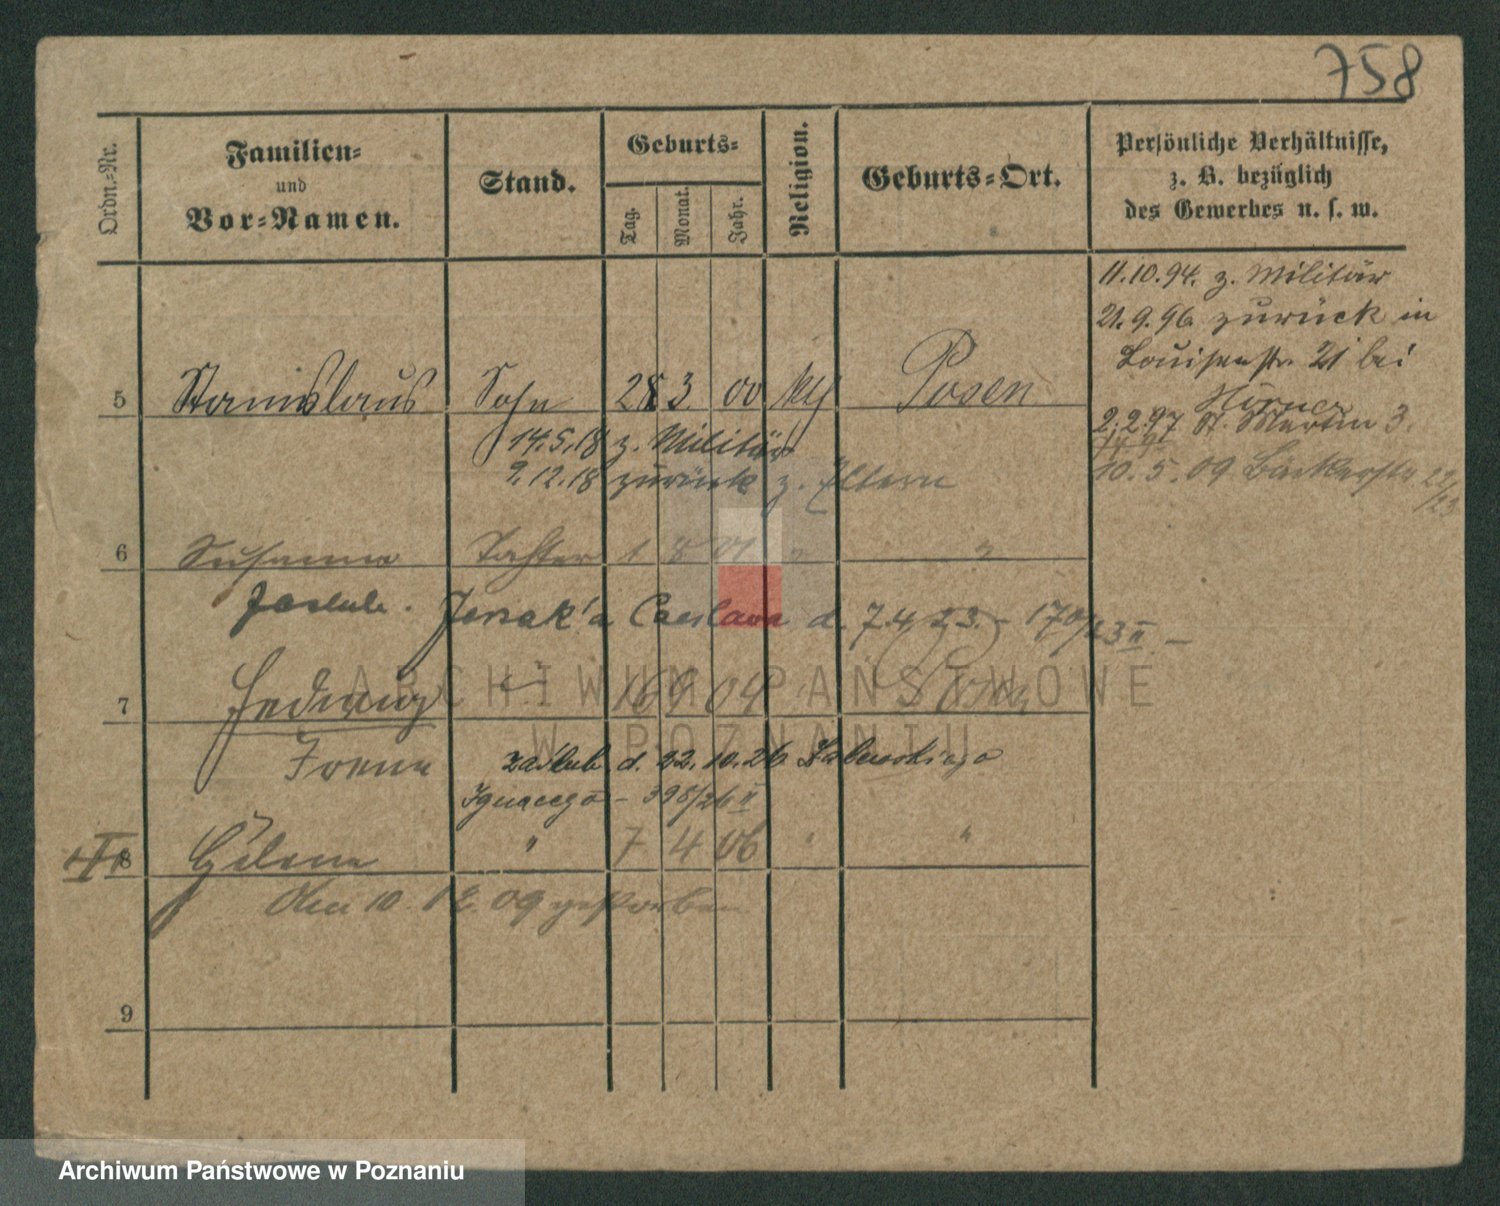 758
Ordn.-Nr.
Familien-
und
Vor-Namen.
Stand.
Geburts-
Tag.
Monat.
Jahr.
Religion.
Geburts-Ort.
Persönliche Verhältnisse,
z. B. bezüglich
des Gewerbes u. s. w.
11.10.94. z. Militär
21.9.96 zurück in
Louisenstr. 21 bei
5 Stanislaus Sohn 28 3. 00 Posen
2.2.97 St. Martin 3.
14.5.18 z. Militär
9.12.18 zurück z. Eltern
10.5.09 Bäckerstr. 22/23
6 Susanna Tochter 1 8 01 " "
zaślub. d. 7.4.23. - 170/23 II -
7 Hedwig 16 9 04 Posen
Irena zaślub. d. 22.10.26
Ignacego - 398/26 II
8 Helena " 7 4 06 " "
Am 10. 12. 09 gestorben
9
ARCHIWUM PAŃSTWOWE
W POZNANIU
Archiwum Państwowe w Poznaniu